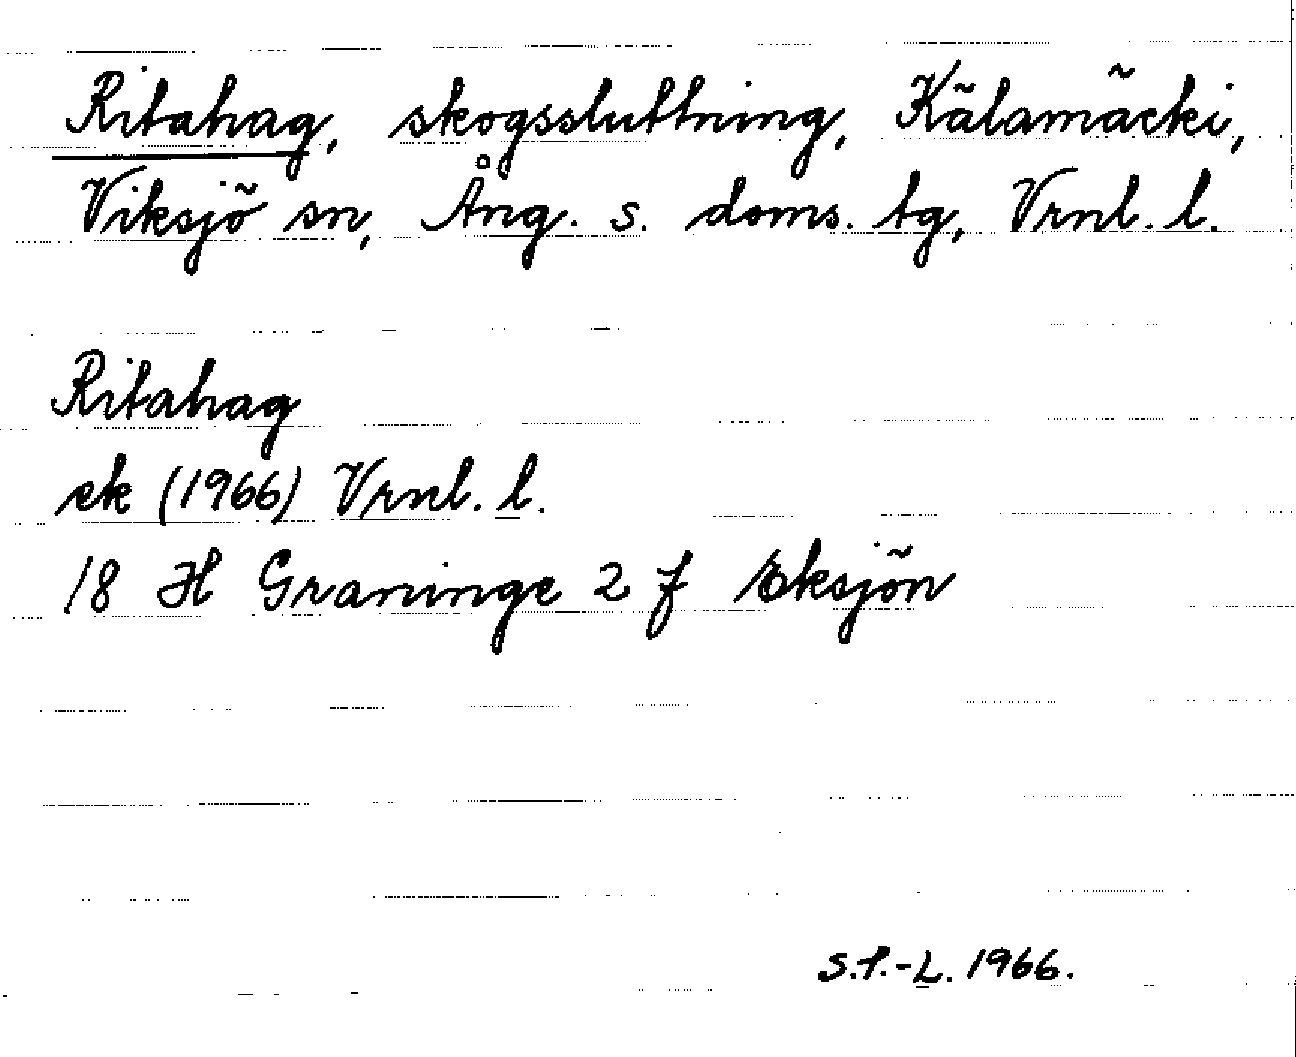 Ritahag, skogssluttning, Kälamäcki,
Viksjö sn, Ång. s. doms. tg, Vrnl. l.
Ritahag
ek (1966) Vrnl. l.
18 H Graninge 2 f Eksjön
S.P.-L. 1966.